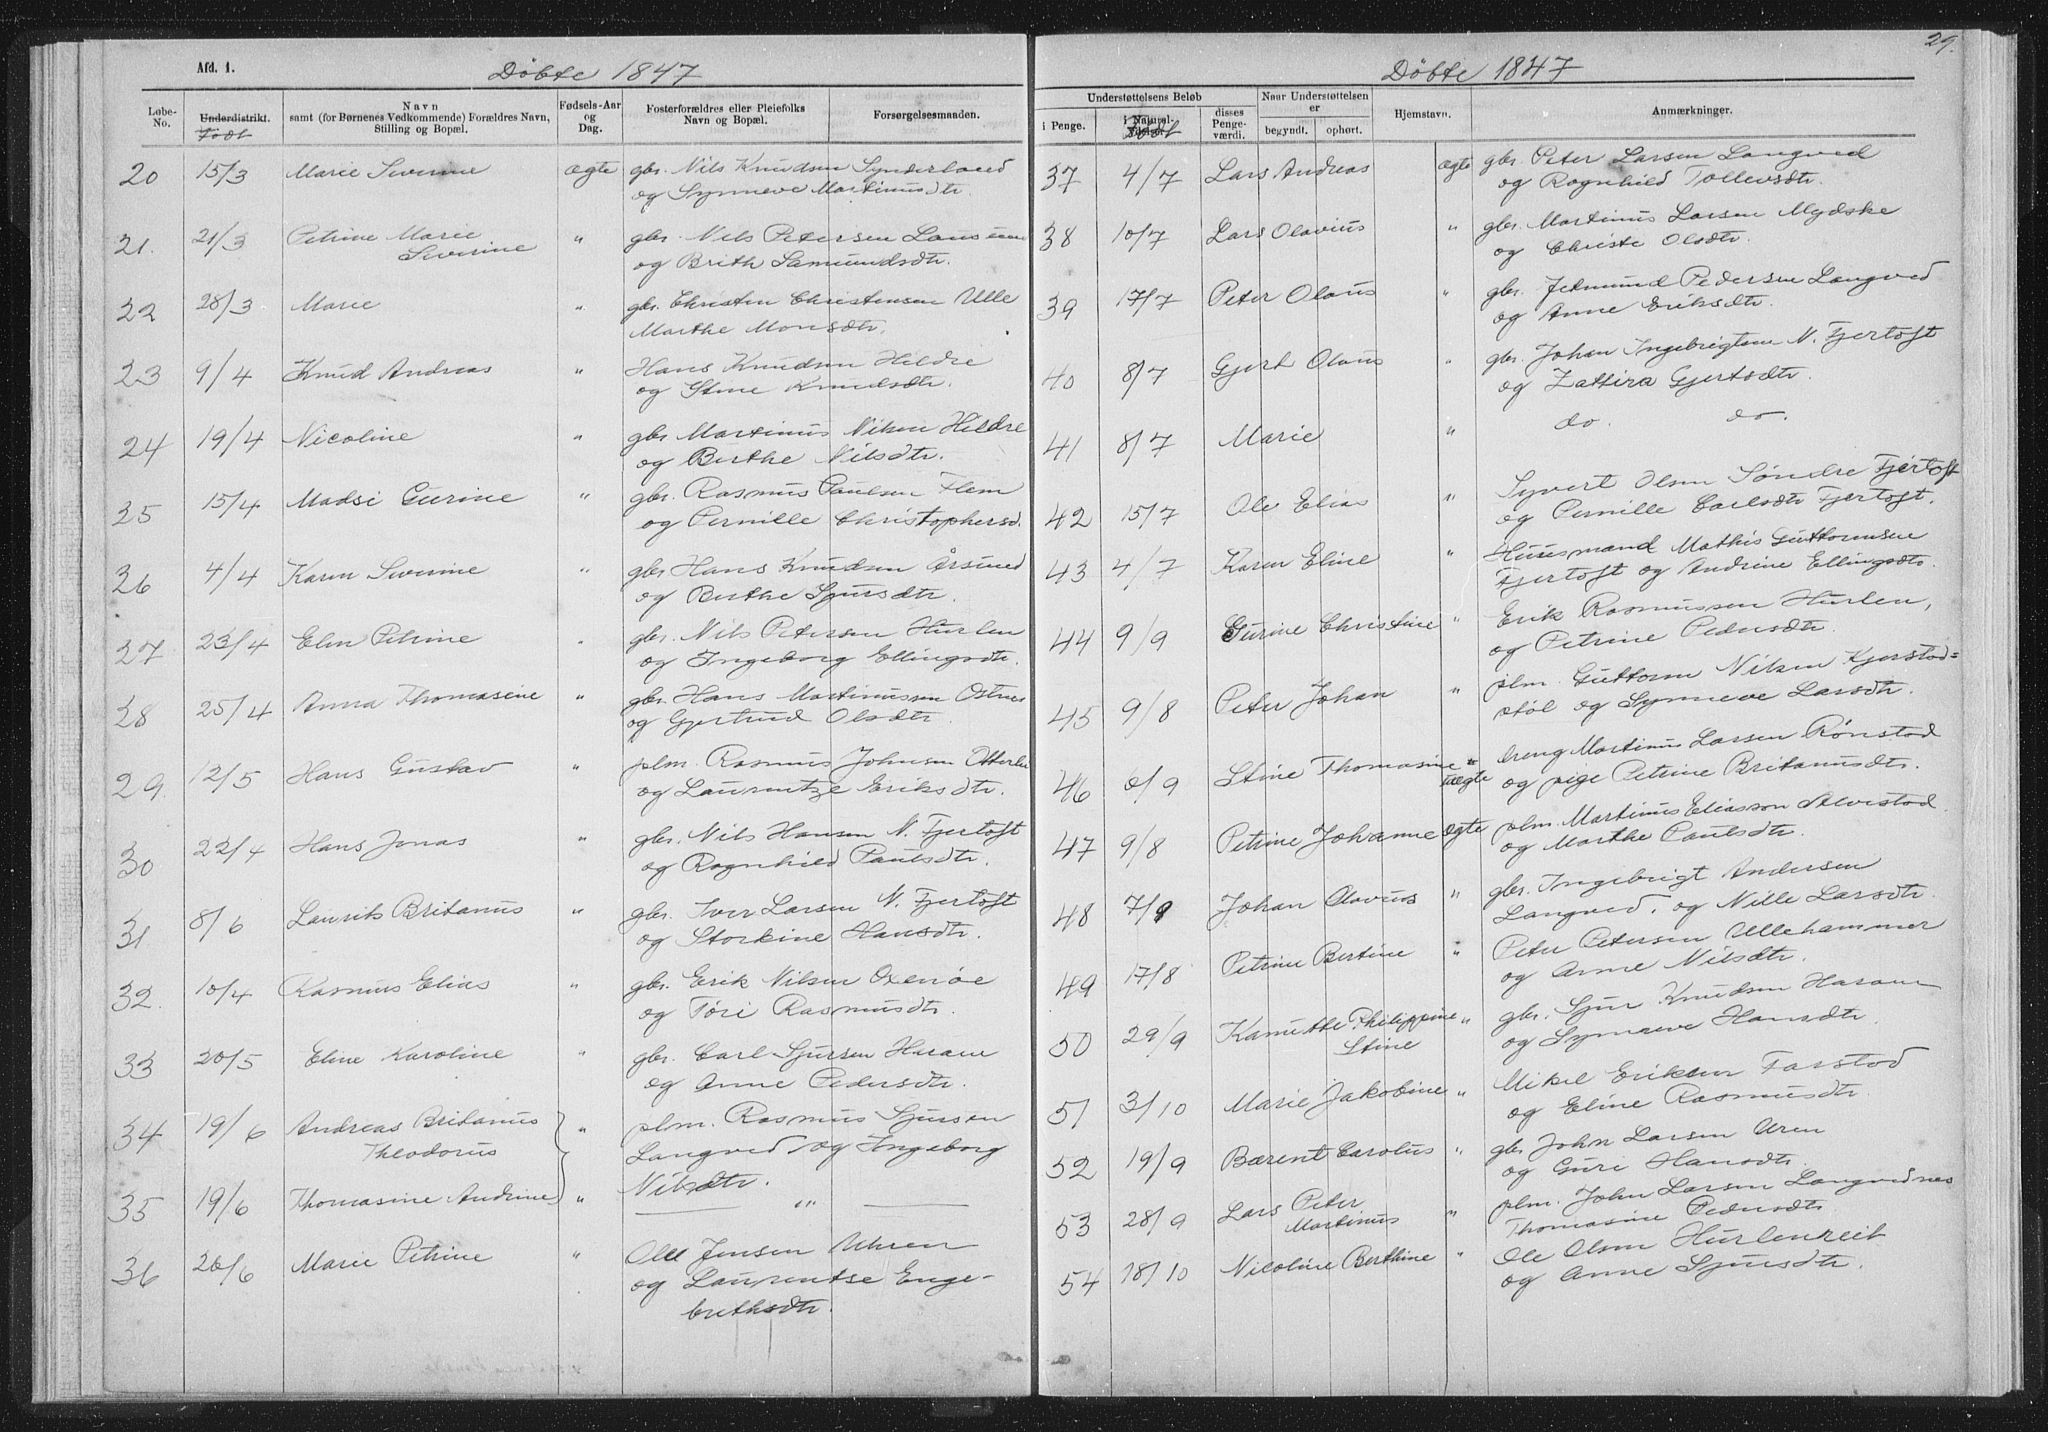 29.
Afd. 1.
Døbte 1847
Løbe-No.
Underdistrikt.
Født
Navn
samt (for Børnenes Vedkommende) Forældres Navn,
Stilling og Bopæl.
Fødsels-Aar
og
Dag.
Fosterforældres eller Pleiefolks
Navn og Bopæl.
Forsørgelsesmaaden.
20 15/3 Marie Severine ægte gbr. Nils Knudsen Synderland
og Synneve Martinusdtr.
21. 21/3 Petrine Marie " gbr. Nils Petersen
Severine og Brith Samundsdtr.
22 28/3 Marie " gbr. Christen Christensen Ulle
Marthe Monsdtr.
23 9/4 Knud Andreas " Hans Knudsen Hildre
og Stine Knudsdtr.
24 19/4 Nicoline " gbr. Martinus Nilsen Hildre
og Berthe Nilsdtr.
25 15/4 Madsi Gurine " gbr. Rasmus Paulsen Flem
og Pernille Christophersd.
26 4/4 Karen Severine " gbr. Hans Knudsen Årsund
og Berthe Sjursdtr.
27 23/4 Elen Petrine " gbr. Nils Petersen Hurlen
og Ingeborg Ellingsdtr.
28 25/4 Anna Thomasine " gbr. Hans Martinussen Ostnes
og Gjertrud Olsdtr.
29. 12/5 Hans Gustav " plm. Rasmus Johnsen Otterlei
og Laurentze Eriksdtr.
30 22/4 Hans Jonas " gbr. Nils Hansen N. Fjertoft
og Rognhild Paulsdtr.
31 8/6 Laurits Britanus " gbr. Iver Larsen N. Fjertoft
og Storkine Hansdtr.
32. 10/4 Rasmus Elias " gbr. Erik Nilsen Oxenøe
og Tøri Rasmusdtr.
33 20/5 Eline Karoline " gbr. Carl Sjursen Haram
og Anne Pedersdtr.
34 19/6 Andreas Britanus " plm. Rasmus Sjursen
Theodorus Langved og Ingeborg
Nilsdtr.
35 19/6 Thomasine Andrine " — " —
36 26/6 Marie Petrine " Ole Jensen Uhren
og Laurentse Enge-
brethsdtr.
Døbte 1847
Understøttelsens Beløb
i Penge.
i Natural-
Født
disses
Penge-
værdi.
Naar Understøttelsen
er
begyndt. ophørt.
Hjemstavn.
Anmærkninger.
37 4/7 Lars Andreas ægte gbr. Peter Larsen Langved
og Rognhild Tollevsdtr.
38 10/7 Lars Olavius " gbr. Martinus Larsen Mydske
og Christe Olsdtr.
39 17/7 Peter Olaus " gbr. Jetmund Pedersen Langved
og Anne Eriksdtr.
40 8/7 Gjert Olaus " gbr. Johan Ingebrigtsen N. Fjertoft
og Zattira Gjertsdtr.
41 8/7 Marie " do. do.
42 15/7 Ole Elias " Syvert Olsen Søndre Fjertoft
og Pernille Carlsdtr Fjertoft.
43 4/7 Karen Eline " Huusmand Mathis Guttormsen
Fjertoft og Andrine Ellingsdtr.
44 9/9 Gurine Christine " Erik Rasmussen Hurlen,
og Petrine Pedersdtr.
45 9/8 Peter Johan " plm. Guttorm Nilsen Kjerstad=
støl og Synneve Larsdtr.
46 0/9 Stine Thomasine " uægte dreng Martinus Larsen Rønstad
og pige Petrine Britanusdtr.
47 9/8 Petrine Johanne ægte plm. Martinus Eliasson Alvestad
og Marthe Paulsdtr.
48 7/9 Johan Olavus " gbr. Ingebrigt Andersen
Langved. og Nille Larsdtr
49 17/8 Petrine Bertine " Peter Petersen Ullehammer
og Anne Nilsdtr.
50 29/9 Kanutte Philippine " gbr. Sjur Knudsen Haram
Stine og Synneve Hansdtr.
51 3/10 Marie Jakobine " Mikel Eriksen Farstad
og Eline Rasmusdtr.
52 19/9 Barent Carolus " gbr. John Larsen Uren
og Guri Hansdtr.
53 28/9 Lars Peter " plm. John Larsen Langvednes
Martinus Thomasine Pedersdtr
54 18/10 Nicoline Berthine " Ole Olsen Hurlenreit
og Anne Sjursdtr.